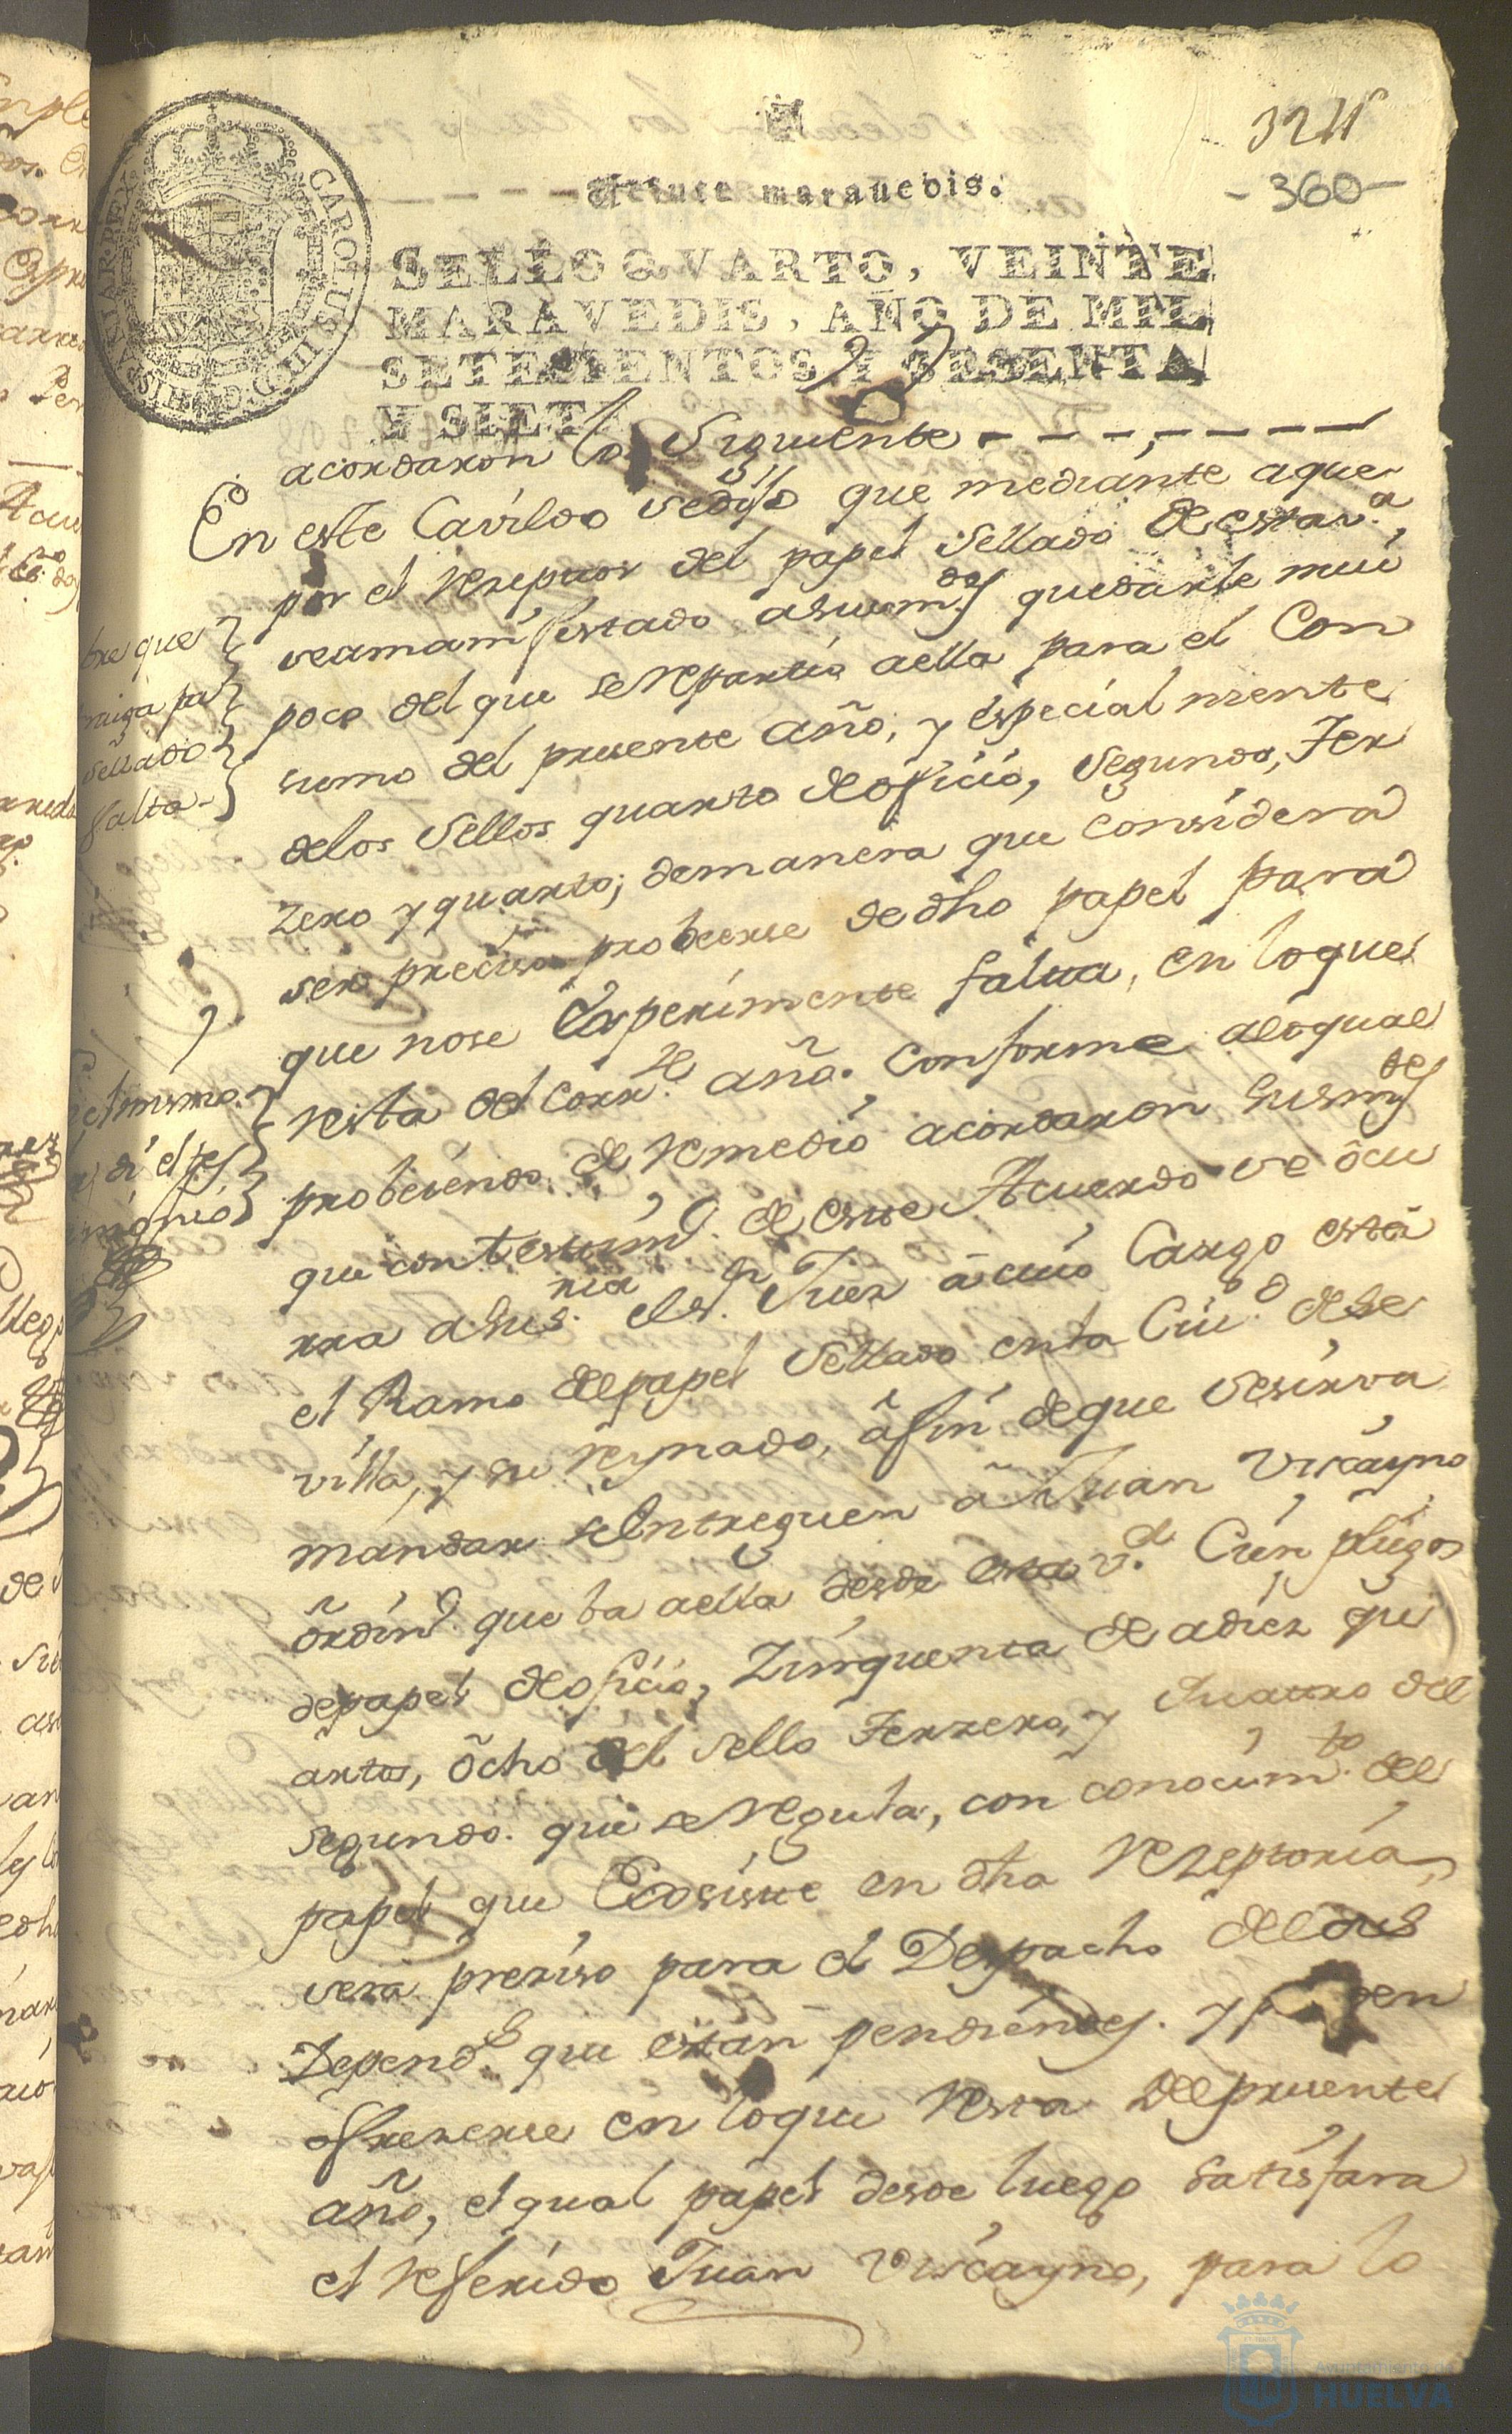 3211
-360-
Veinte marauedis.
CAROLUS III D G HISPANIAR REX
SELLO QVARTO, VEINTE
MARAVEDIS, AÑO DE MIL
SETECIENTOS Y SESENTA
Y SIETE
acordaron lo Siguiente
En este Cavildo se dijo que mediante aque
por el Rezeptor del papel Sellado de esta v.ª
se a manifestado a sus m.des quedarle mui
poco del que se Repartió a ella para el Con
sumo del presente año, y especial mente
delos Sellos quarto de oficio, Segundo, Ter
zero y quarto; de manera que considera
ser preciso probeerse de dho papel para
que nose Experimente falta, en loque
resta del corr.te año. Conforme aloqual
probeiendo de remedio acordaron sus m.des
que con testim.º de este Acuerdo se ocu
rra a Su S.ria el S.r Juez a cuio Cargo está
el Ramo del papel Sellado enla Ciu.d de Se
villa, y su Reynado, a fin deque se sirva
mandar se Entreguen a Juan Viscayno
ordin.º que ba aella desde esta v.ª Cien pliegos
de papel de oficio, Zinquenta de adiez qu
artos, ocho del sello Terzero, y Quatro del
segundo. que se Regula, con conocim.to del
papel que Exsiste en dha Rezeptoria,
sera preziso para el Despacho delos
Depend.s que estan pendientes. y p den
ofrezerse en loque Resta del presente
año, el qual papel desde luego satisfara
el Referido Juan Viscayno, para lo
bre que
traiga pa
sellado
falta
el mismo.
di el tes
timonio
Ayuntamiento de
HUELVA